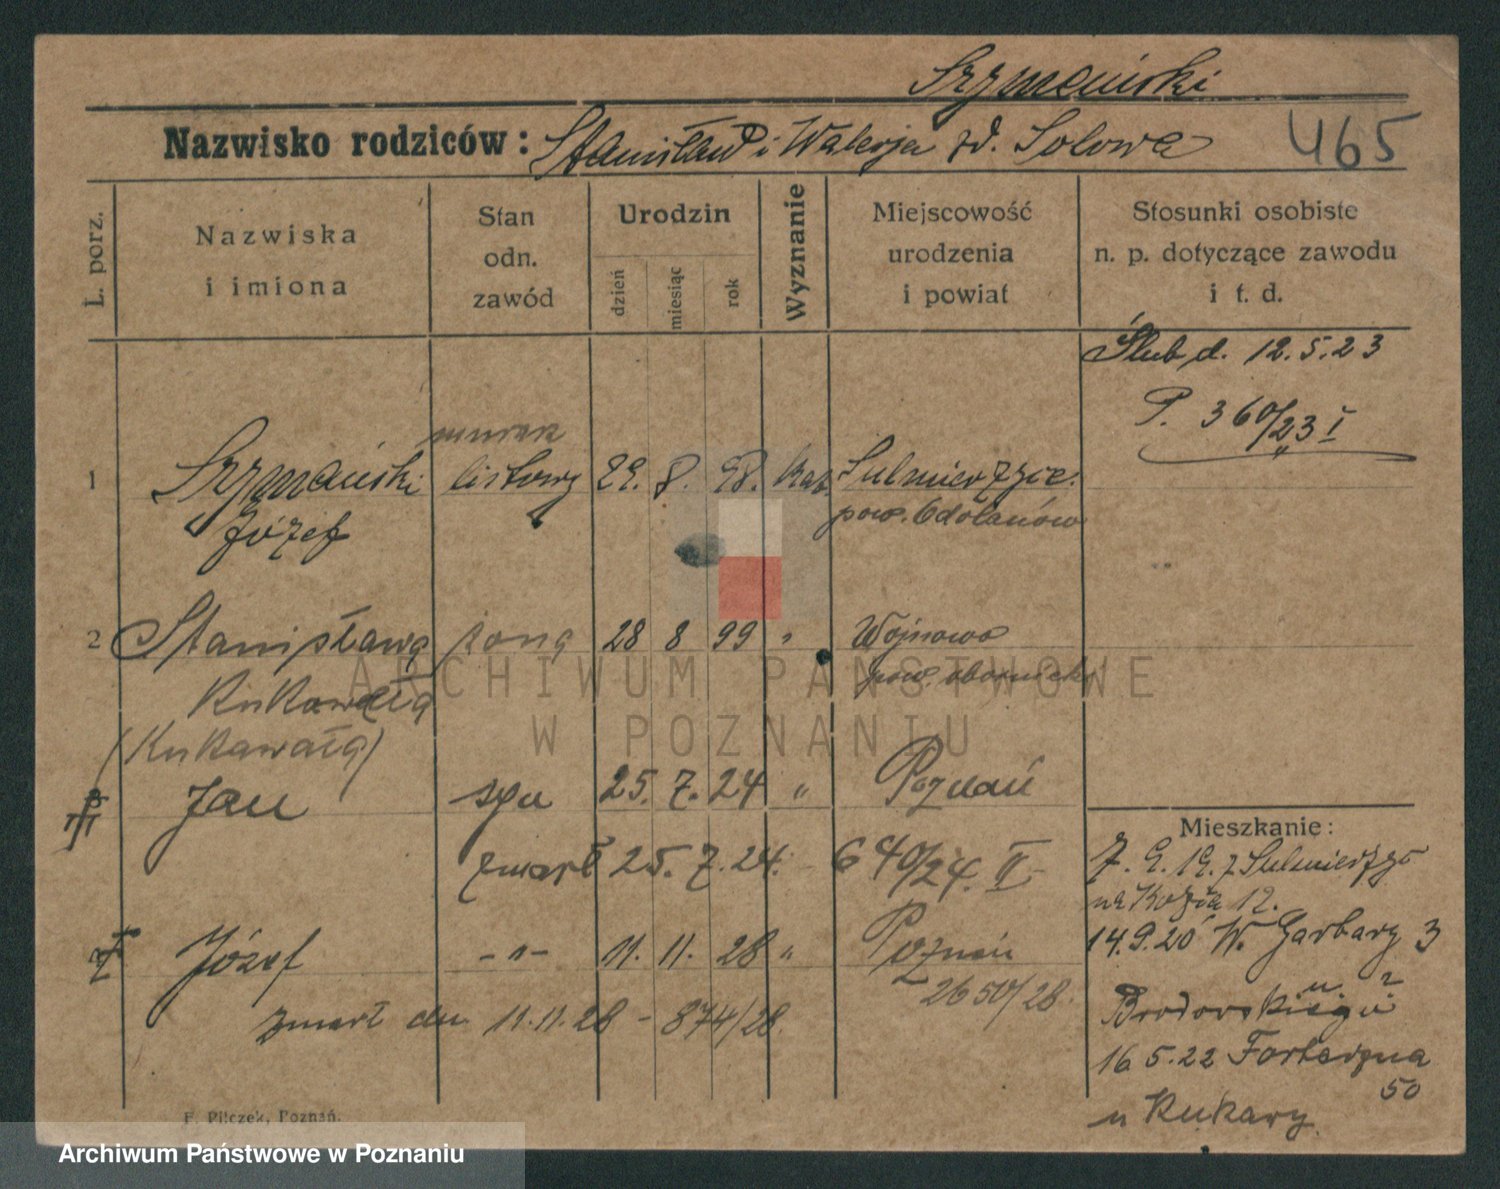 Szymański
Nazwisko rodziców: Stanisław i Walerja zd. Solowa 465
L. porz.
Nazwiska i imiona
Stan odn. zawód
Urodzin
dzień miesiąc rok
Wyznanie
Miejscowość urodzenia i powiat
Stosunki osobiste n. p. dotyczące zawodu i t. d.
Ślub d. 12.5.23
P. 360/23 I
1 Szymański listowy 29. 8. 98. kat. Sulmierzyce
Józef pow. Odolanów
2 Stanisława żona 28 8 99 " Wojnowo
pow. obornicki
(Kukawała)
Jan syn 25. 7. 24 " Poznań
zmarł 25. 7. 24. 640/24. II
Józef -"- 11. 11. 28 " Poznań
2650/28.
zmarł dn. 11.11.28 - 874/28.
Mieszkanie:
7. 9. 19. z Sulmierzyc
na Kozia 12.
14.9.20 W. Garbary 3
16.5.22 Forteczna
50
u Kukawy
F. Pilczek, Poznań.
ARCHIWUM PAŃSTWOWE
W POZNANIU
Archiwum Państwowe w Poznaniu